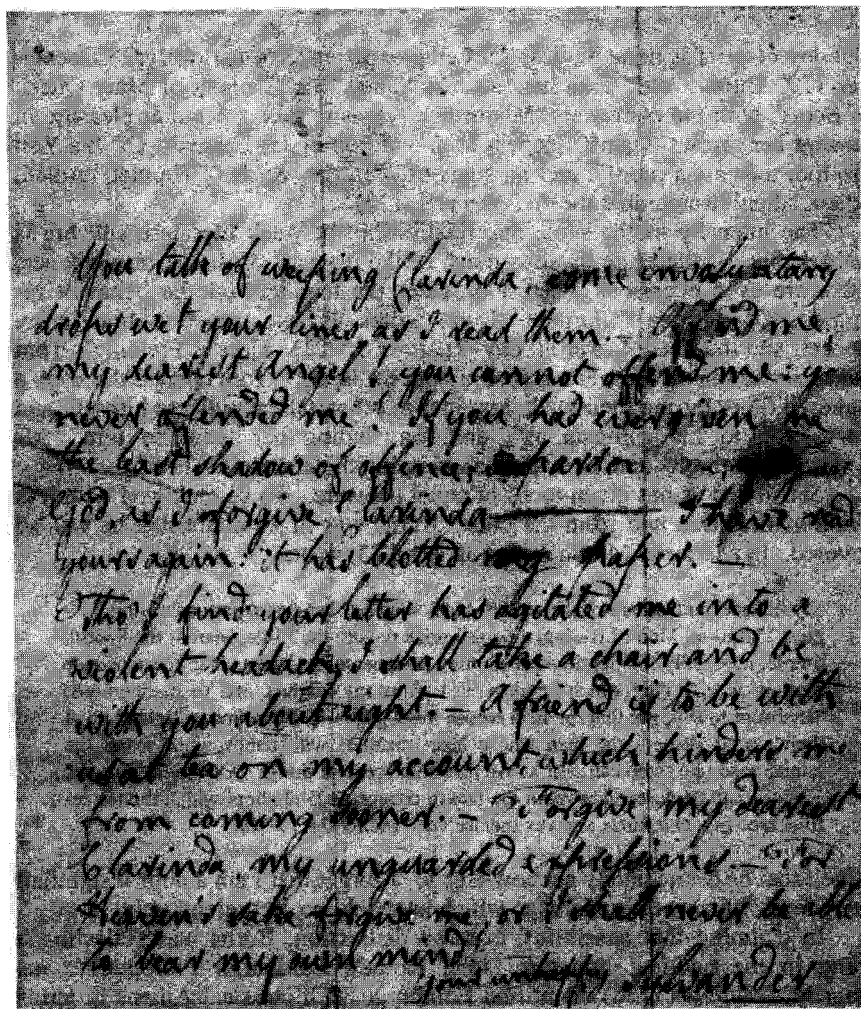 You talk of weeping Clarinda, some involuntary
drops wet your lines as I read them. — Offend me,
my dearest Angel! you cannot offend me: you
never offended me! If you had ever given me
the least shadow of offence, pardon me,
God, as I forgive Clarinda — I have read
yours again: it has blotted my paper. —
Tho' I find your letter has agitated me into a
violent headach, I shall take a chair and be
with you about eight. — A friend is to be with
us at tea on my account, which hinders me
from coming sooner. — Forgive, my dearest
Clarinda, my unguarded expressions — For
Heaven's sake forgive me, or I shall never be able
to bear my own mind!
your unhappy Sylvander